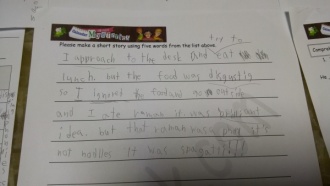 try to
Please make a short story using five words from the list above.
I approach to the desk and eat
lunch. but the food was
so I ignored the food and go eating
and I ate ramen it was brilliant
idea. but that ramen was
not noodles it was spagheti!!!
Compreh
1.